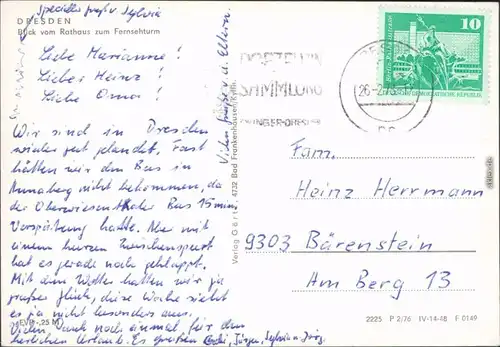 Spezielle Grüße Sylvia
DRESDEN
Blick vom Rathaus zum Fernsehturm
Liebe Marianne!
Lieber Heinz!
Liebe Oma!
Wir sind in Dresden
wieder gut gelandet. Fast
hätten wir den Bus in
Annaberg nicht bekommen, da
der Oberwiesenthaler Bus 15 min
Verspätung hatte. Aber mit
einem kurzen Zwischenspurt
hat es gerade noch geklappt.
Mit dem Wetter hatten wir ja
großes Glück, diese Woche sieht
es ja nicht besonders aus.
Vielen Dank noch einmal für den
herrlichen Urlaub. Es grüßen Jürgen, Sylvia u. Jörg
EVP -,25 M
Viele Grüße a. d. Eltern
Verlag Görtz 4732 Bad Frankenhausen/Kyffh.
PORZELLAN
SAMMLUNG
ZWINGER-DRESDEN
26.-2.76
10
DEMOKRATISCHE REPUBLIK
Fam.
Heinz Herrmann
9303 Bärenstein
Am Berg 13
2225 P 2/76 IV-14-48 F 0149